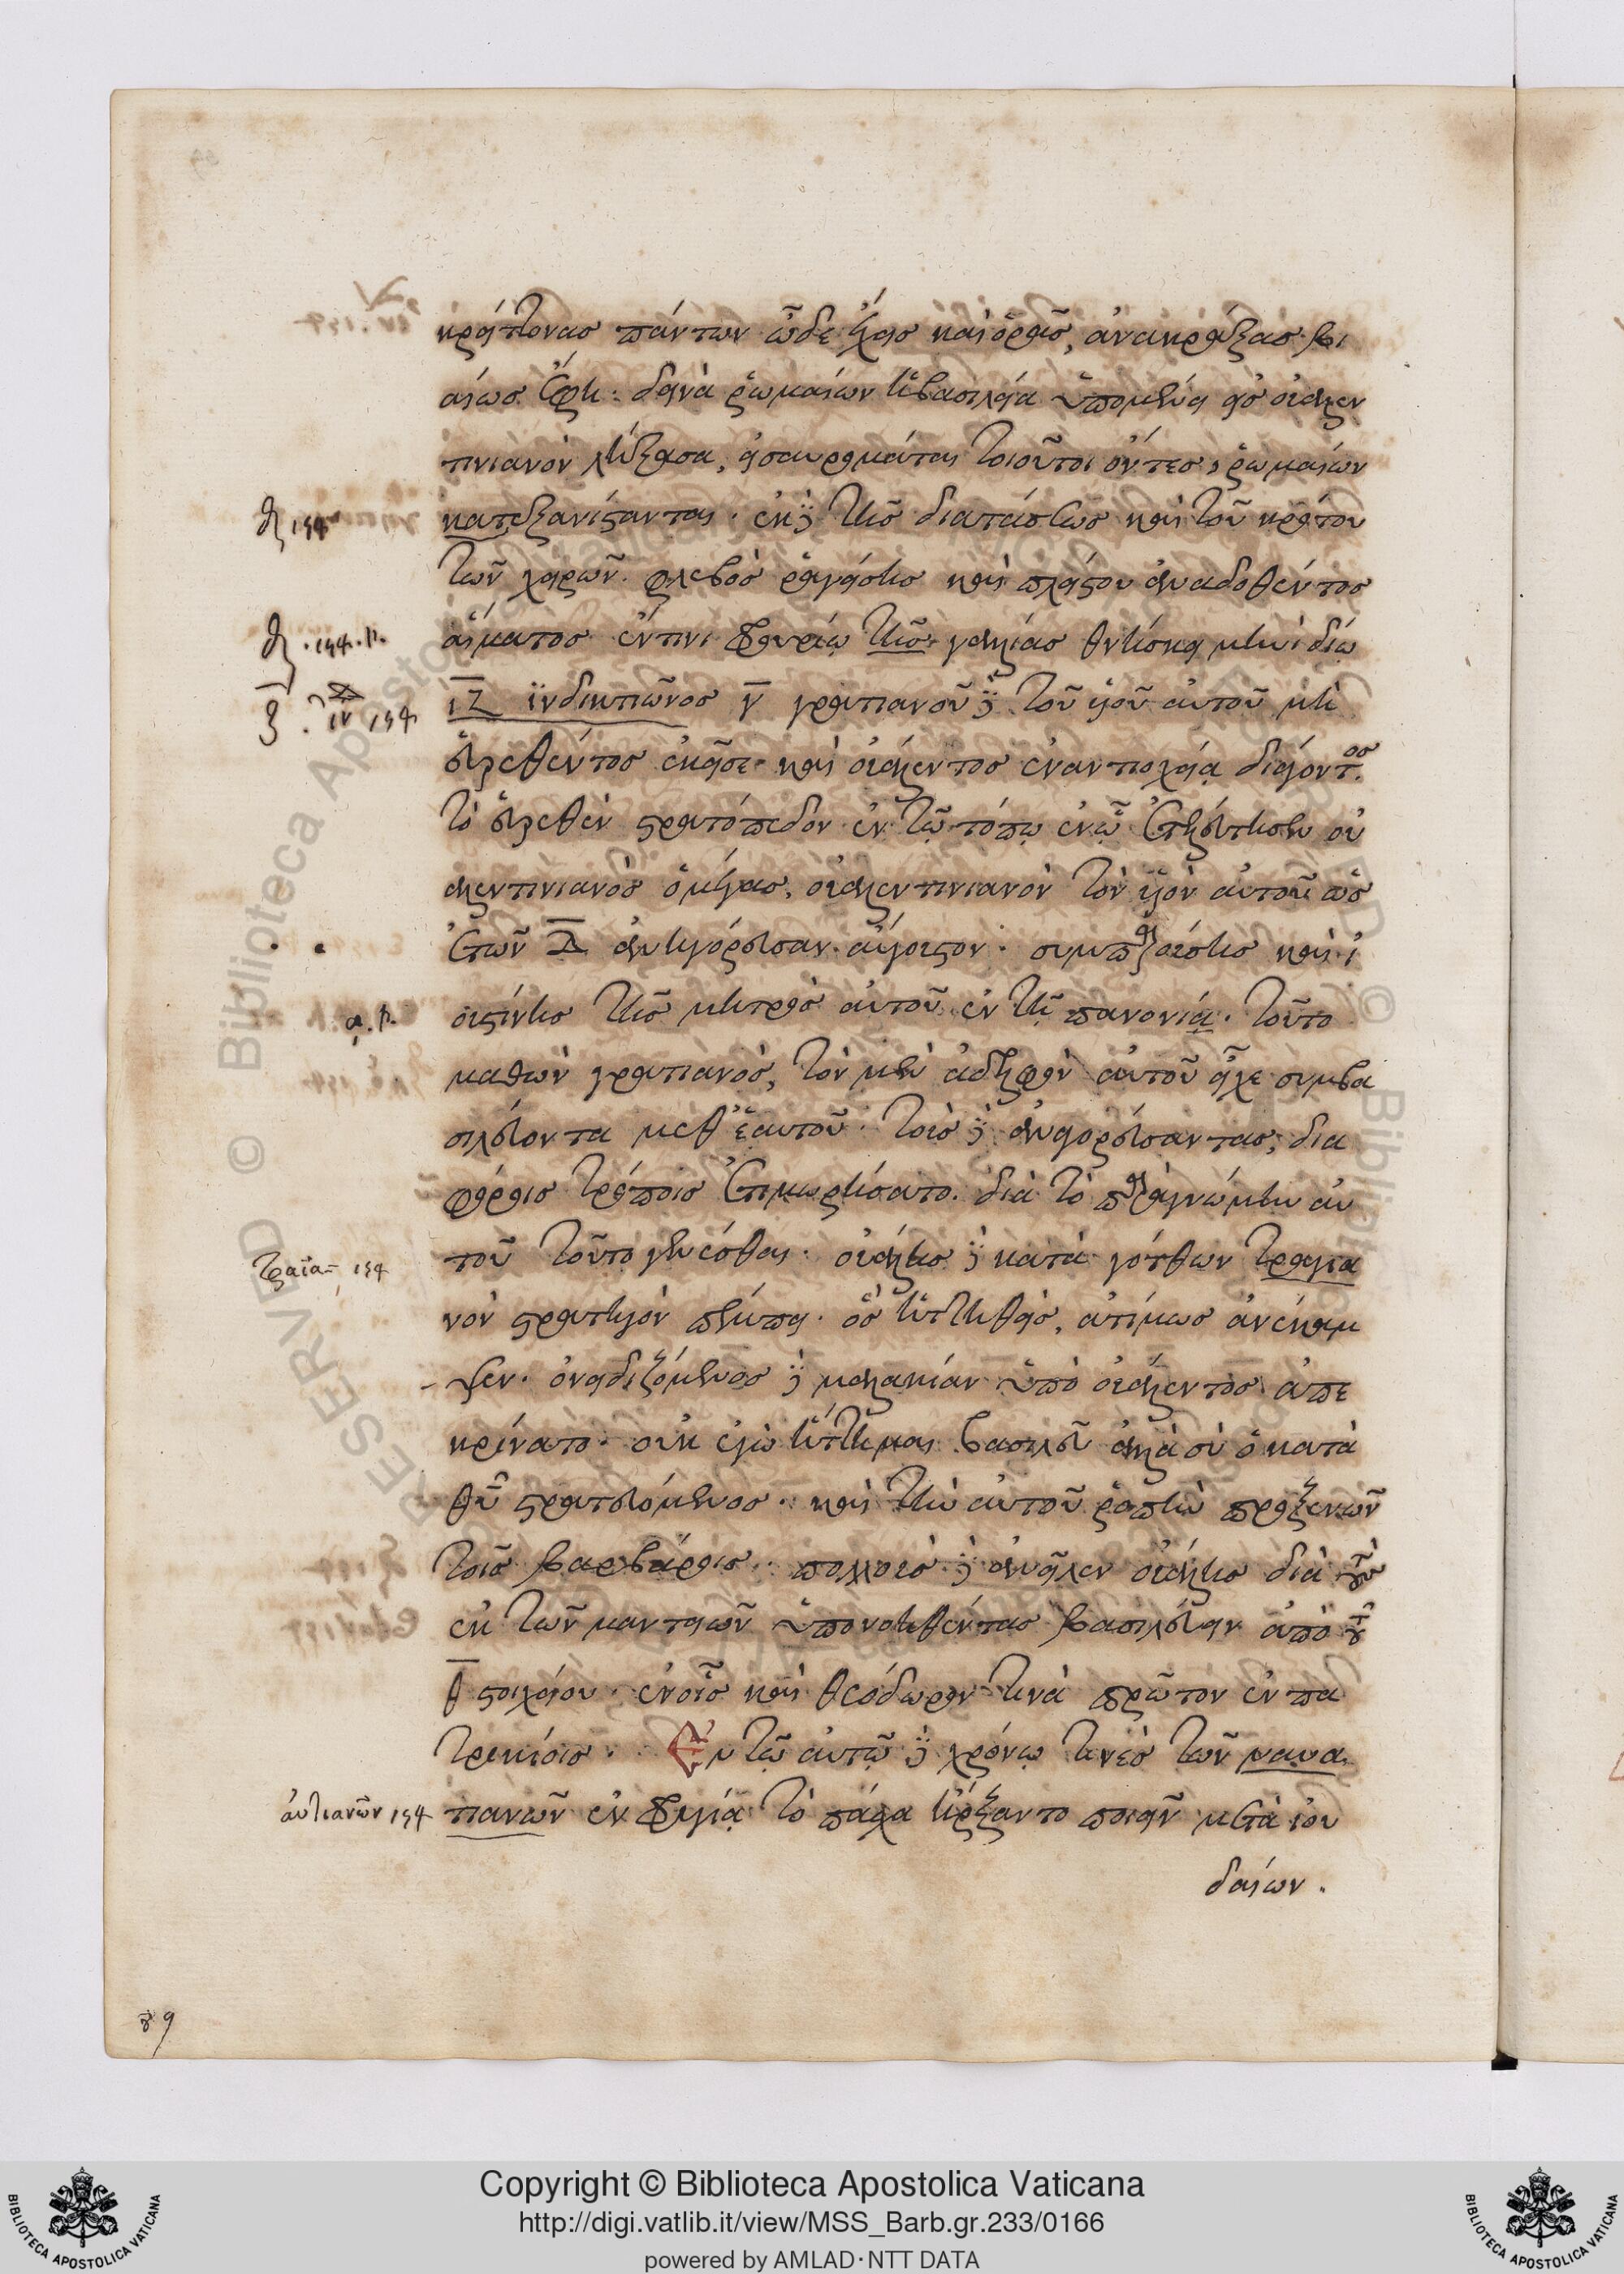 κρείττονας πάντων ὧδε ἔχεις καὶ ὁρᾶς, ἀνακράξας βι
αίως ἔφη· δεινὰ ῥωμαίων ἡ βασιλεία ὑπομένει εἰς οὐαλεν
τινιανὸν λήξασα, εἰ σαυρομάται τοιοῦτοι ὄντες ῥωμαίων
κατεξανίστανται. ἐκ δὲ τῆς διατάσεως καὶ τοῦ κρότου
τῶν χειρῶν. φλεβὸς ῥαγείσης καὶ πλείστου ἀναδοθέντος
αἵματος ἔν τινι φρουρίῳ τῆς γαλλίας θνήσκει μηνὶ δίῳ
ιζ ἰνδικτιῶνος γ γρατιανοῦ δὲ τοῦ υἱοῦ αὐτοῦ μὴ
εὑρεθέντος ἐκεῖσε καὶ οὐάλεντος ἐν ἀντιοχείᾳ διάγοντος
τὸ εὑρεθὲν στρατόπεδον ἐν τῷ τόπῳ ἐν ᾧ ἐτελεύτησεν οὐ
αλεντινιανὸς ὁ μέγας, οὐαλεντινιανὸν τὸν υἱὸν αὐτοῦ ὡς
ἐτῶν Δ ἀνηγόρευσαν αὔγουστον. συμπαρούσης καὶ ἰ
ουστίνης τῆς μητρὸς αὐτοῦ ἐν τῇ πανονίᾳ. τοῦτο
μαθὼν γρατιανός, τὸν μὲν ἀδελφὸν αὐτοῦ εἶχε συμβα
σιλεύοντα μεθ' ἑαυτοῦ· τοὺς δὲ ἀναγορεύσαντας, δια
φόροις τρόποις ἐτιμωρήσατο. διὰ τὸ παρὰ γνώμην αὐ
τοῦ τοῦτο γενέσθαι. οὐάλης δὲ κατὰ γότθων τραγια
νὸν στρατηγὸν πέμπει. ὃς ἡττηθείς, ἀτίμως ἀνέκαμ
ψεν. ὀνειδιζόμενος δὲ μαλακίαν ὑπὸ οὐάλεντος ἀπε
κρίνατο. οὐκ ἐγὼ ἥττημαι βασιλεῦ ἀλλὰ σὺ ὁ κατὰ
θῦ στρατευόμενος. καὶ τὴν αὐτοῦ ῥοπὴν προξενῶν
τοῖς βαρβάροις. πολλοὺς δὲ ἀνεῖλεν οὐάλης διὰ τοὺς
ἐκ τῶν μαντειῶν ὑπονοηθέντας βασιλεύειν ἀπὸ τοῦ
θ στοιχείου. ἐν οἷς καὶ θεόδωρον τινὰ πρῶτον ἐν πα
τρικίοις. Ἐν τῷ αὐτῷ δὲ χρόνῳ τινὲς τῶν ναυα
τιανῶν ἐν φρυγίᾳ τὸ πάσχα ἤρξαντο ποιεῖν μετὰ ἰου
δαίων.
Copyright © Biblioteca Apostolica Vaticana
http://digi.vatlib.it/view/MSS_Barb.gr.233/0166
powered by AMLAD·NTT DATA
BIBLIOTECA APOSTOLICA VATICANA
BIBLIOTECA APOSTOLICA VATICANA